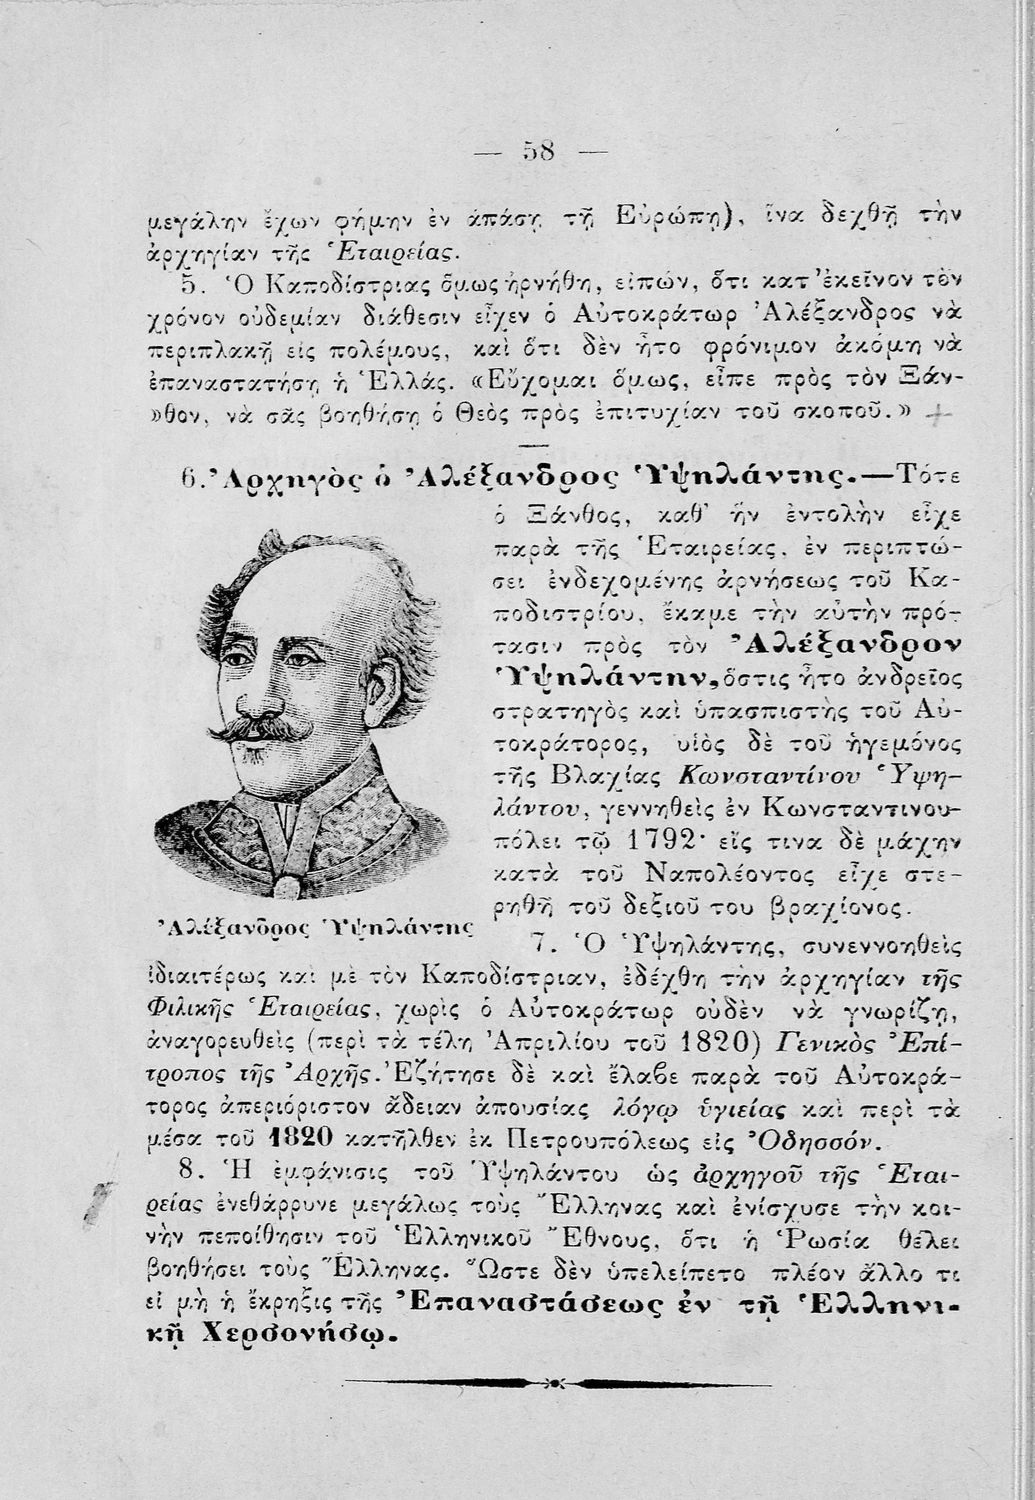 — 58 —
μεγάλην ἔχων φήμην ἐν ἁπάσῃ τῇ Εὐρώπῃ), ἵνα δεχθῇ τὴν
ἀρχηγίαν τῆς Ἑταιρείας.
5. Ὁ Καποδίστριας ὅμως ἠρνήθη, εἰπών, ὅτι κατ' ἐκεῖνον τὸν
χρόνον οὐδεμίαν διάθεσιν εἶχεν ὁ Αὐτοκράτωρ Ἀλέξανδρος νὰ
περιπλακῇ εἰς πολέμους, καὶ ὅτι δὲν ἦτο φρόνιμον ἀκόμη νὰ
ἐπαναστατήσῃ ἡ Ἑλλάς. «Εὔχομαι ὅμως, εἶπε πρὸς τὸν Ξάν-
»θον, νὰ σᾶς βοηθήσῃ ὁ Θεὸς πρὸς ἐπιτυχίαν τοῦ σκοποῦ.»
6. Ἀρχηγὸς ὁ Ἀλέξανδρος Ὑψηλάντης.—Τότε
ὁ Ξάνθος, καθ' ἣν ἐντολὴν εἶχε
παρὰ τῆς Ἑταιρείας, ἐν περιπτώ-
σει ἐνδεχομένης ἀρνήσεως τοῦ Κα-
ποδιστρίου, ἔκαμε τὴν αὐτὴν πρό-
τασιν πρὸς τὸν Ἀλέξανδρον
Ὑψηλάντην, ὅστις ἦτο ἀνδρεῖος
στρατηγὸς καὶ ὑπασπιστὴς τοῦ Αὐ-
τοκράτορος, υἱὸς δὲ τοῦ ἡγεμόνος
τῆς Βλαχίας Κωνσταντίνου Ὑψη-
λάντου, γεννηθεὶς ἐν Κωνσταντινου-
πόλει τῷ 1792· εἴς τινα δὲ μάχην
κατὰ τοῦ Ναπολέοντος εἶχε στε-
ρηθῆ τοῦ δεξιοῦ του βραχίονος.
Ἀλέξανδρος Ὑψηλάντης
7. Ὁ Ὑψηλάντης, συνεννοηθεὶς
ἰδιαιτέρως καὶ μὲ τὸν Καποδίστριαν, ἐδέχθη τὴν ἀρχηγίαν τῆς
Φιλικῆς Ἑταιρείας, χωρὶς ὁ Αὐτοκράτωρ οὐδὲν νὰ γνωρίζῃ,
ἀναγορευθεὶς (περὶ τὰ τέλη Ἀπριλίου τοῦ 1820) Γενικὸς Ἐπί-
τροπος τῆς Ἀρχῆς. Ἐζήτησε δὲ καὶ ἔλαβε παρὰ τοῦ Αὐτοκρά-
τορος ἀπεριόριστον ἄδειαν ἀπουσίας λόγῳ ὑγιείας καὶ περὶ τὰ
μέσα τοῦ 1820 κατῆλθεν ἐκ Πετρουπόλεως εἰς Ὀδησσόν.
8. Ἡ ἐμφάνισις τοῦ Ὑψηλάντου ὡς ἀρχηγοῦ τῆς Ἑται-
ρείας ἐνεθάρρυνε μεγάλως τοὺς Ἕλληνας καὶ ἐνίσχυσε τὴν κοι-
νὴν πεποίθησιν τοῦ Ἑλληνικοῦ Ἔθνους, ὅτι ἡ Ῥωσία θέλει
βοηθήσει τοὺς Ἕλληνας. Ὥστε δὲν ὑπελείπετο πλέον ἄλλο τι
εἰ μὴ ἡ ἔκρηξις τῆς Ἐπαναστάσεως ἐν τῇ Ἑλληνι-
κῇ Χερσονήσῳ.